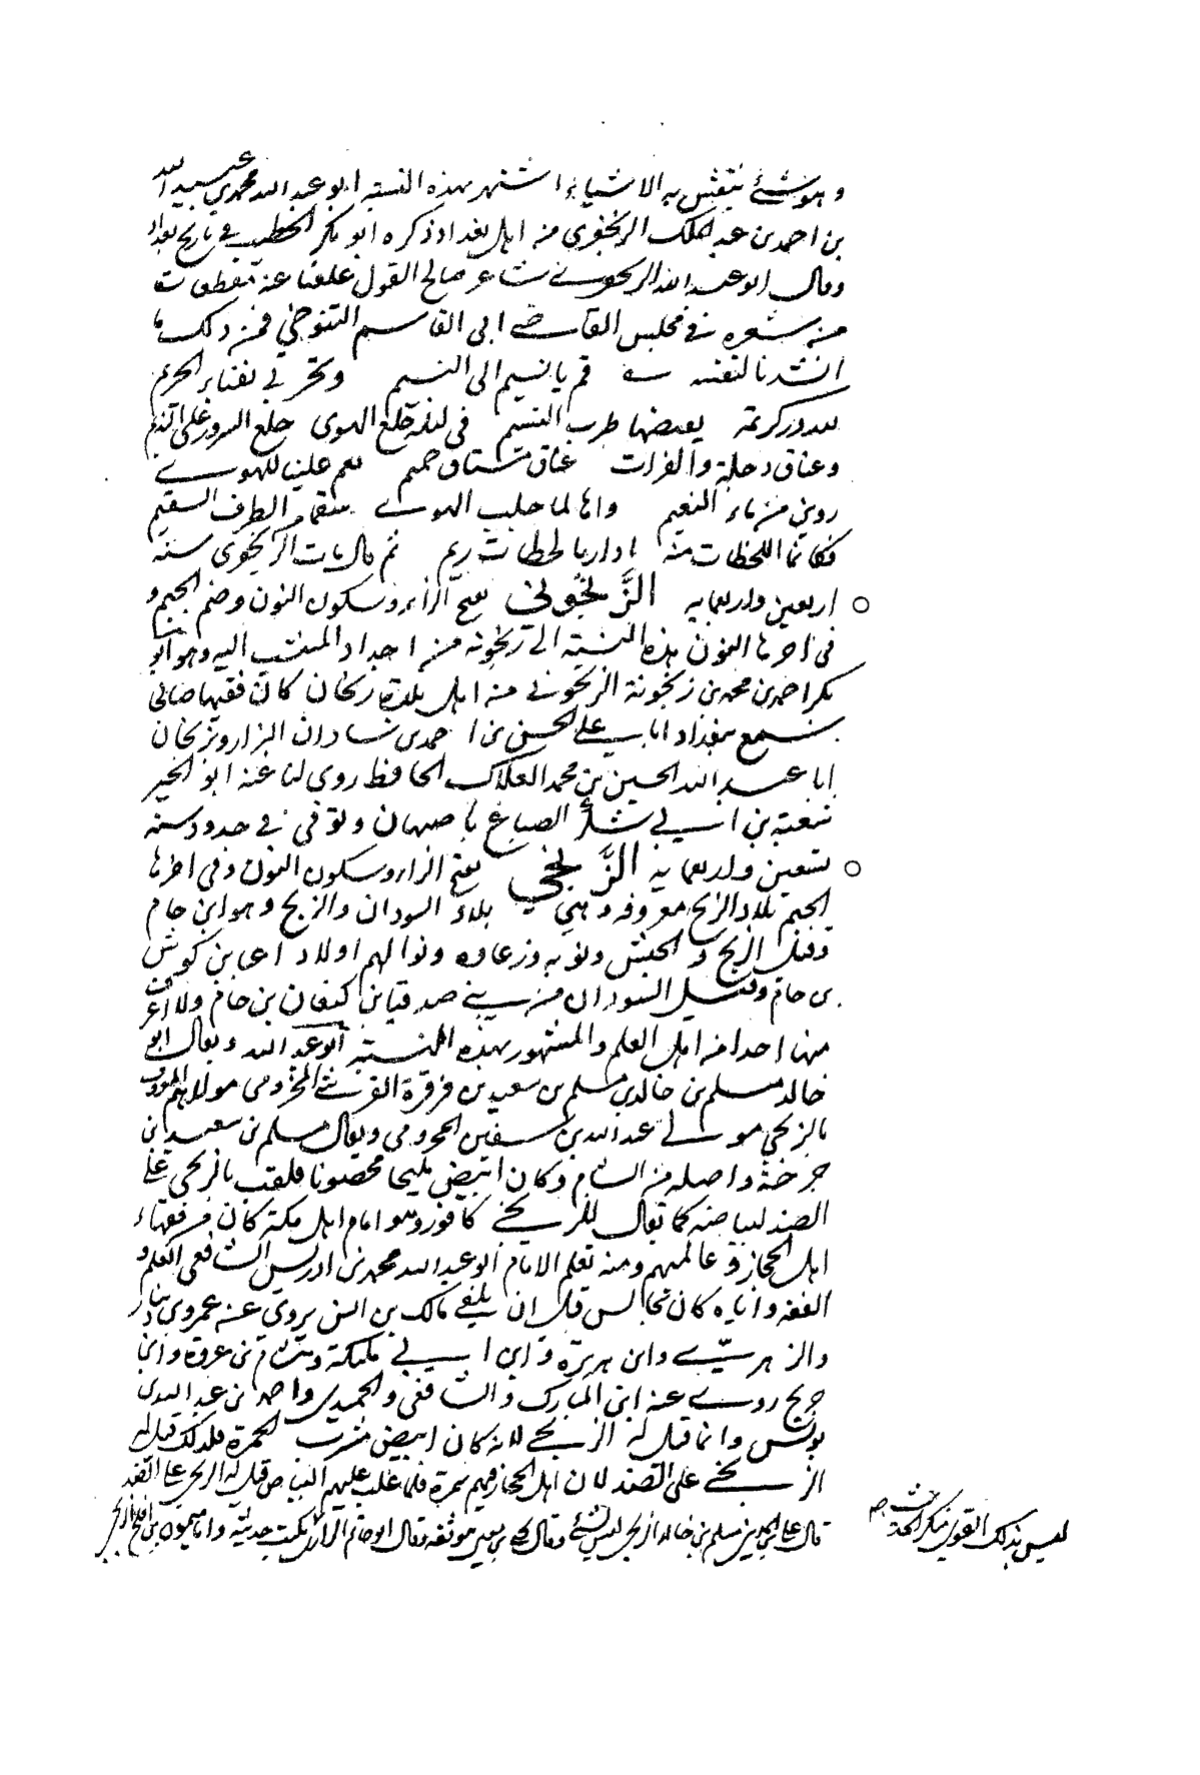 وهو شيء ينقش به الاشياء اشتهر بهذه النسبة ابو عبد الله محمد بن عبيد الله
بن احمد بن عبد الملك الزنجفري من اهل بغداد ذكره ابو بكر الخطيب في تاريخ بغداد
وقال ابو عبد الله الزنجفري شاعر صالح القول علقنا عنه مقطعات
من شعره في مجلس القاضي ابي القاسم التنوخي فمن ذلك ما
انشدنا لنفسه قم يا نسيم الى النسيم وتحر في بفناء الحريم
لله در كريمة يعضها طرب النسيم في ليلة خلع الهوى خلع السرور على النديم
وعناق دجلة والفرات عناق مشتاق حميم نعم علينا للهوى
روين من ماء النعيم وانما جلب الهوى سقام الطرف السقيم
فكانما اللحظات منه اذا رنا لحظات ريم ثم قال مات الزنجفري سنة
اربعين واربعمايه الزَّنْجُوني بفتح الزاء وسكون النون وضم الجيم و
في اخرها النون هذه النسبة الى زنجونه من اجداد المنتسب اليه وهو ابو
بكر احمد بن محمد بن زنجونة الزنجوني من اهل بلدة زنجان كان فقيها فاضلا
سمع ببغداد ابا علي الحسن بن احمد بن شاذان البزار وبزنجان
ابا عبد الله الحسين بن محمد الفلاكي الحافظ روى لنا عنه ابو الخير
شعبة بن ابي شكر الصباغ باصبهان وتوفي في حدود سنه
تسعين واربعمايه الزَّنْجي بفتح الزاء وسكون النون وفي اخرها
الجيم بلاد الزنج معروفه وهي بلاد السودان والزنج وهو ابن حام
وقيل الزنج والحبش ونوبه وزغاوه وفزان هم اولاد رعما بن كوش
بن حام وقيل السودان من بني صدقيا بن كنعان بن حام ولا اعرف
منها احدا من اهل العلم والمشهور بهذه النسبة ابو عبد الله ويقال ابو
خالد مسلم بن خالد بن مسلم بن سعيد بن قرقرة القرشي المخزومي مولاهم المعروف
بالزنجي مولى عبد الله بن سفين المخزومي ويقال مسلم بن سعيد بن
جرجة واصله من الشام وكان ابيض مليحا فلقب بالزنجي على
الضد لبياضه كما يقال للزنجي كافور وهو امام اهل مكة كان من فقهاء
اهل الحجاز وعالمهم ومنه تعلم الامام ابو عبد الله محمد بن ادريس الشافعي العلم و
الفقه واياه كان يجالس قبل ان يلقى مالك بن انس يروي عن عمرو بن دينار
والزهري وابن هريره وابن ابي مليكة وهشام بن عروة وابن
جريج روى عنه ابن المبارك والشافعي والحميدي واحمد بن عبد الله بن
يونس وانما قيل له الزنجي لانه كان ابيض مشرب الحمرة فلذلك قيل له
الزنجي على الضد لان اهل الحجاز فيهم سمرة فلما غلب عليهم البياض قيل له الزنجي على الضد
قال علي بن المديني مسلم بن خالد الزنجي ليس بشيء وقال يحيى بن معين هو ثقه وقال ابو حاتم الرازي يكتب حديثه واما ميمون بن افلح الزنجي
ليس بذلك القوي منكر الحديث صح